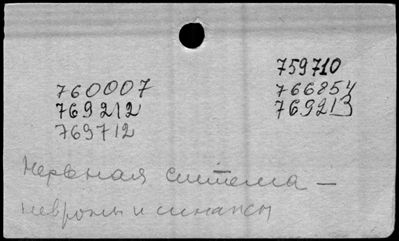 760007
769212
769712
759710
766854
769213
Нервная система –
невроны и синапсы